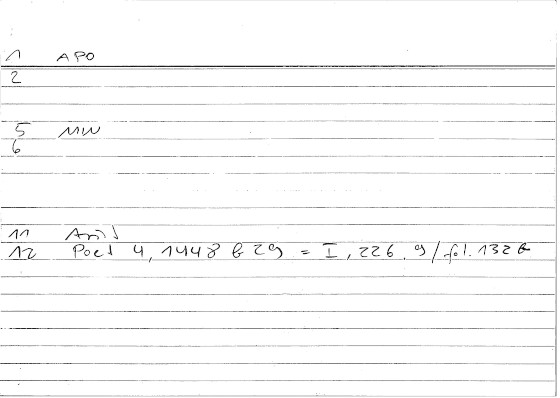 1 APO
2
5 MW
6
11 Arist
12 Poet 4, 1448 b 29 = I, 226, 9 / fol. 132 b